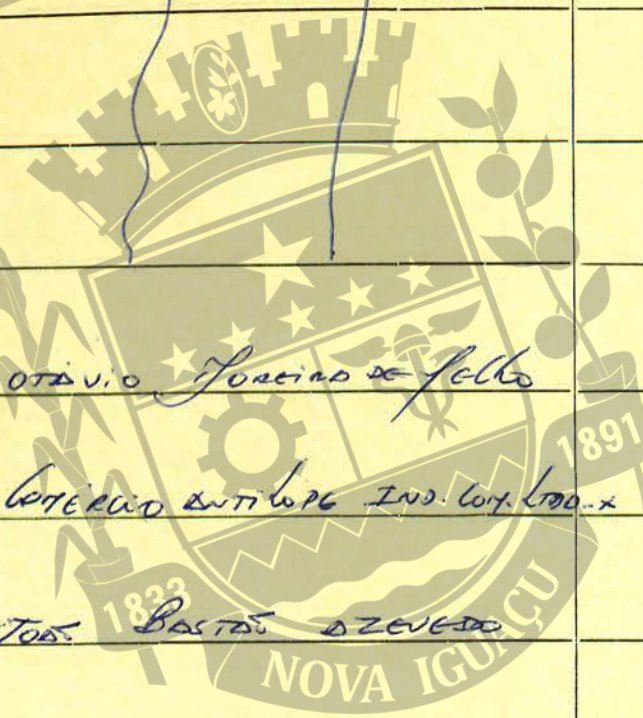 Otávio Moreira de Mello
1891
Comércio Antilope Ind. Com. Ltda. x
1833
João Bastos Azevedo
NOVA IGUAÇU